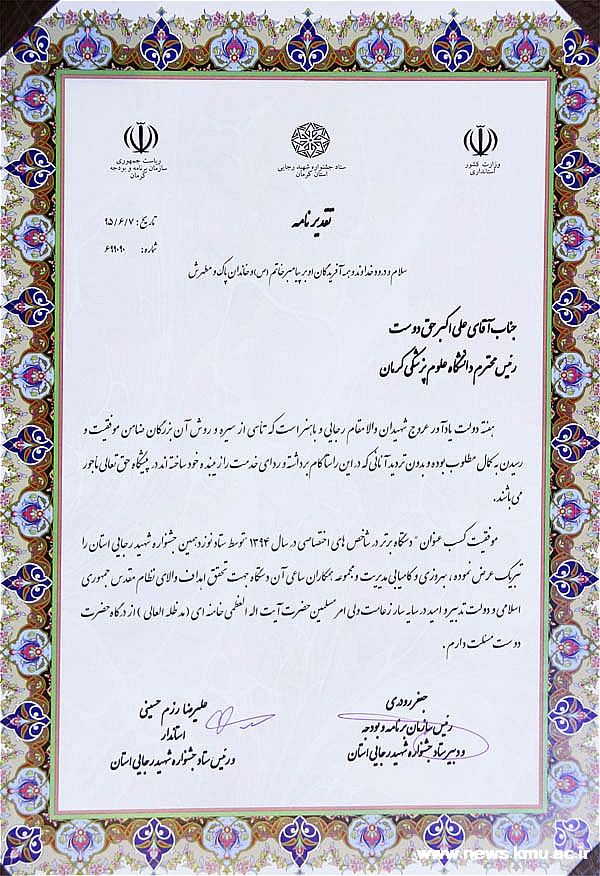 وزارت کشور
استانداری
ستاد جشنواره شهید رجایی
استان کرمان
ریاست جمهوری
سازمان برنامه و بودجه
کرمان
تقدیرنامه
تاریخ: ۹۵/۶/۷
شماره: ۶۹۹۰۹۰
سلام و درود خداوند و همه آفریدگان او بر پیامبر خاتم (ص) و خاندان پاک و مطهرش
جناب آقای علی اکبر حق دوست
رئیس محترم دانشگاه علوم پزشکی کرمان
هفته دولت یادآور عروج شهیدان والامقام رجایی و باهنر است که تاسی از سیره و روش آن بزرگان ضامن موفقیت و
رسیدن به کمال مطلوب بوده و بدون تردید آنانی که در این راستا گام برداشته و ردای خدمت را زیبنده خود ساخته اند در پیشگاه حق تعالی ماجور
می باشند.
موفقیت کسب عنوان " دستگاه برتر در شاخص های اختصاصی در سال ۱۳۹۴ توسط ستاد نوزدهمین جشنواره شهید رجایی استان را
تبریک عرض نموده، بهروزی و کامیابی مدیریت و مجموعه همکاران ساعی آن دستگاه جهت تحقق اهداف والای نظام مقدس جمهوری
اسلامی و دولت تدبیر و امید در سایه سار زعامت ولی امر مسلمین حضرت آیت اله العظمی خامنه ای (مدظله العالی) از درگاه حضرت
دوست مسئلت دارم.
جعفر رودری
رئیس سازمان برنامه و بودجه
و دبیر ستاد جشنواره شهید رجایی استان
علیرضا رزم حسینی
استاندار
و رئیس ستاد جشنواره شهید رجایی استان
www.news.kmu.ac.ir